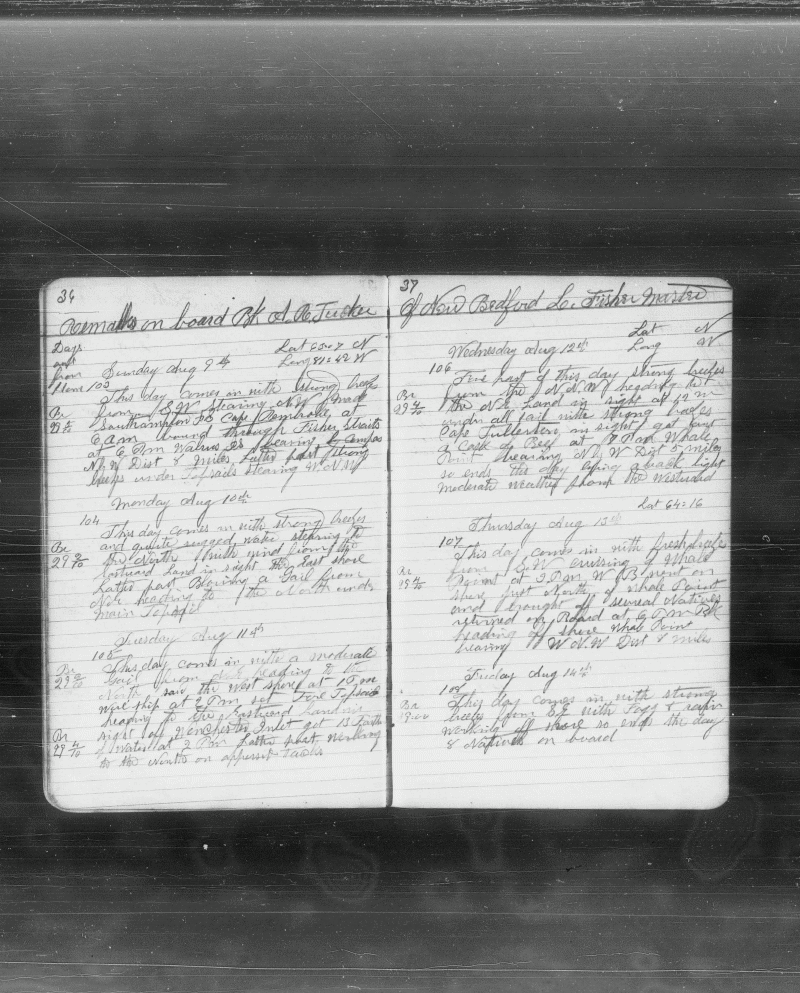 36
Remarks on board Bk A. R. Tucker
Days
out
from
Home
Lat 63=07 N
Long 81=42 W
Sunday Aug 9th
103
This day comes in with strong breeze
from S.W stearing N.W made
Southampton Is Cape Pembroke at
6 Am bound through Fisher Straits
at 6 Pm Walrus Is bearing by Compas
N.W Dist 8 Miles Latter part strong
breeze under Topsails stearing W.N.W
Br
29
Monday Aug 10th
104
This day comes in with strong breezes
and quite rugged stearing to
the North with wind from the
Eastward Land in sight the East shore
Latter part Blowing a Gail from
heading to the North under
main Topsail
Br
29 2/10
Tuesday Aug 11th
105
This day comes in with a moderate
Gail from heading to the
North saw the West shore at 10 am
ware ship at 6 Pm set Fore Topsail
heading to the Eastward Land in
sight of Winchester Inlet got 13 Fath
of Water at 2 Pm Latter part working
to the North on appersit Tacks
Br
29 2/10
Br
29 4/10
37
Of New Bedford L. Fisher Master
Lat N
Long W
Wednesday Aug 12th
106
Fore part of this day strong breezes
from the N.N.W heading to
the N.E Land in sight at 12 m
under all sail with strong breezes
Cape Fullerton in sight got out
a Cask of Beef at 7 Pm Whale
Point bearing N.W Dist 5 miles
so ends this day lying aback light
moderate weather from the Westward
Br
29 4/10
Lat 64=16
Thursday Aug 13th
107
This day comes in with fresh
from S.W cruising of Whale
Point at 2 Pm W B went on
shore just North of Whale Point
and brought off several Natives
returned on Board at 6 Pm Bk
heading of shore Whale Point
bearing W.N.W Dist 8 Miles
Br
29
Friday Aug 14th
108
This day comes in with strong
breezes from S.E with Fogg & rain
working off shore so ends the day
8 Natives on board
Br